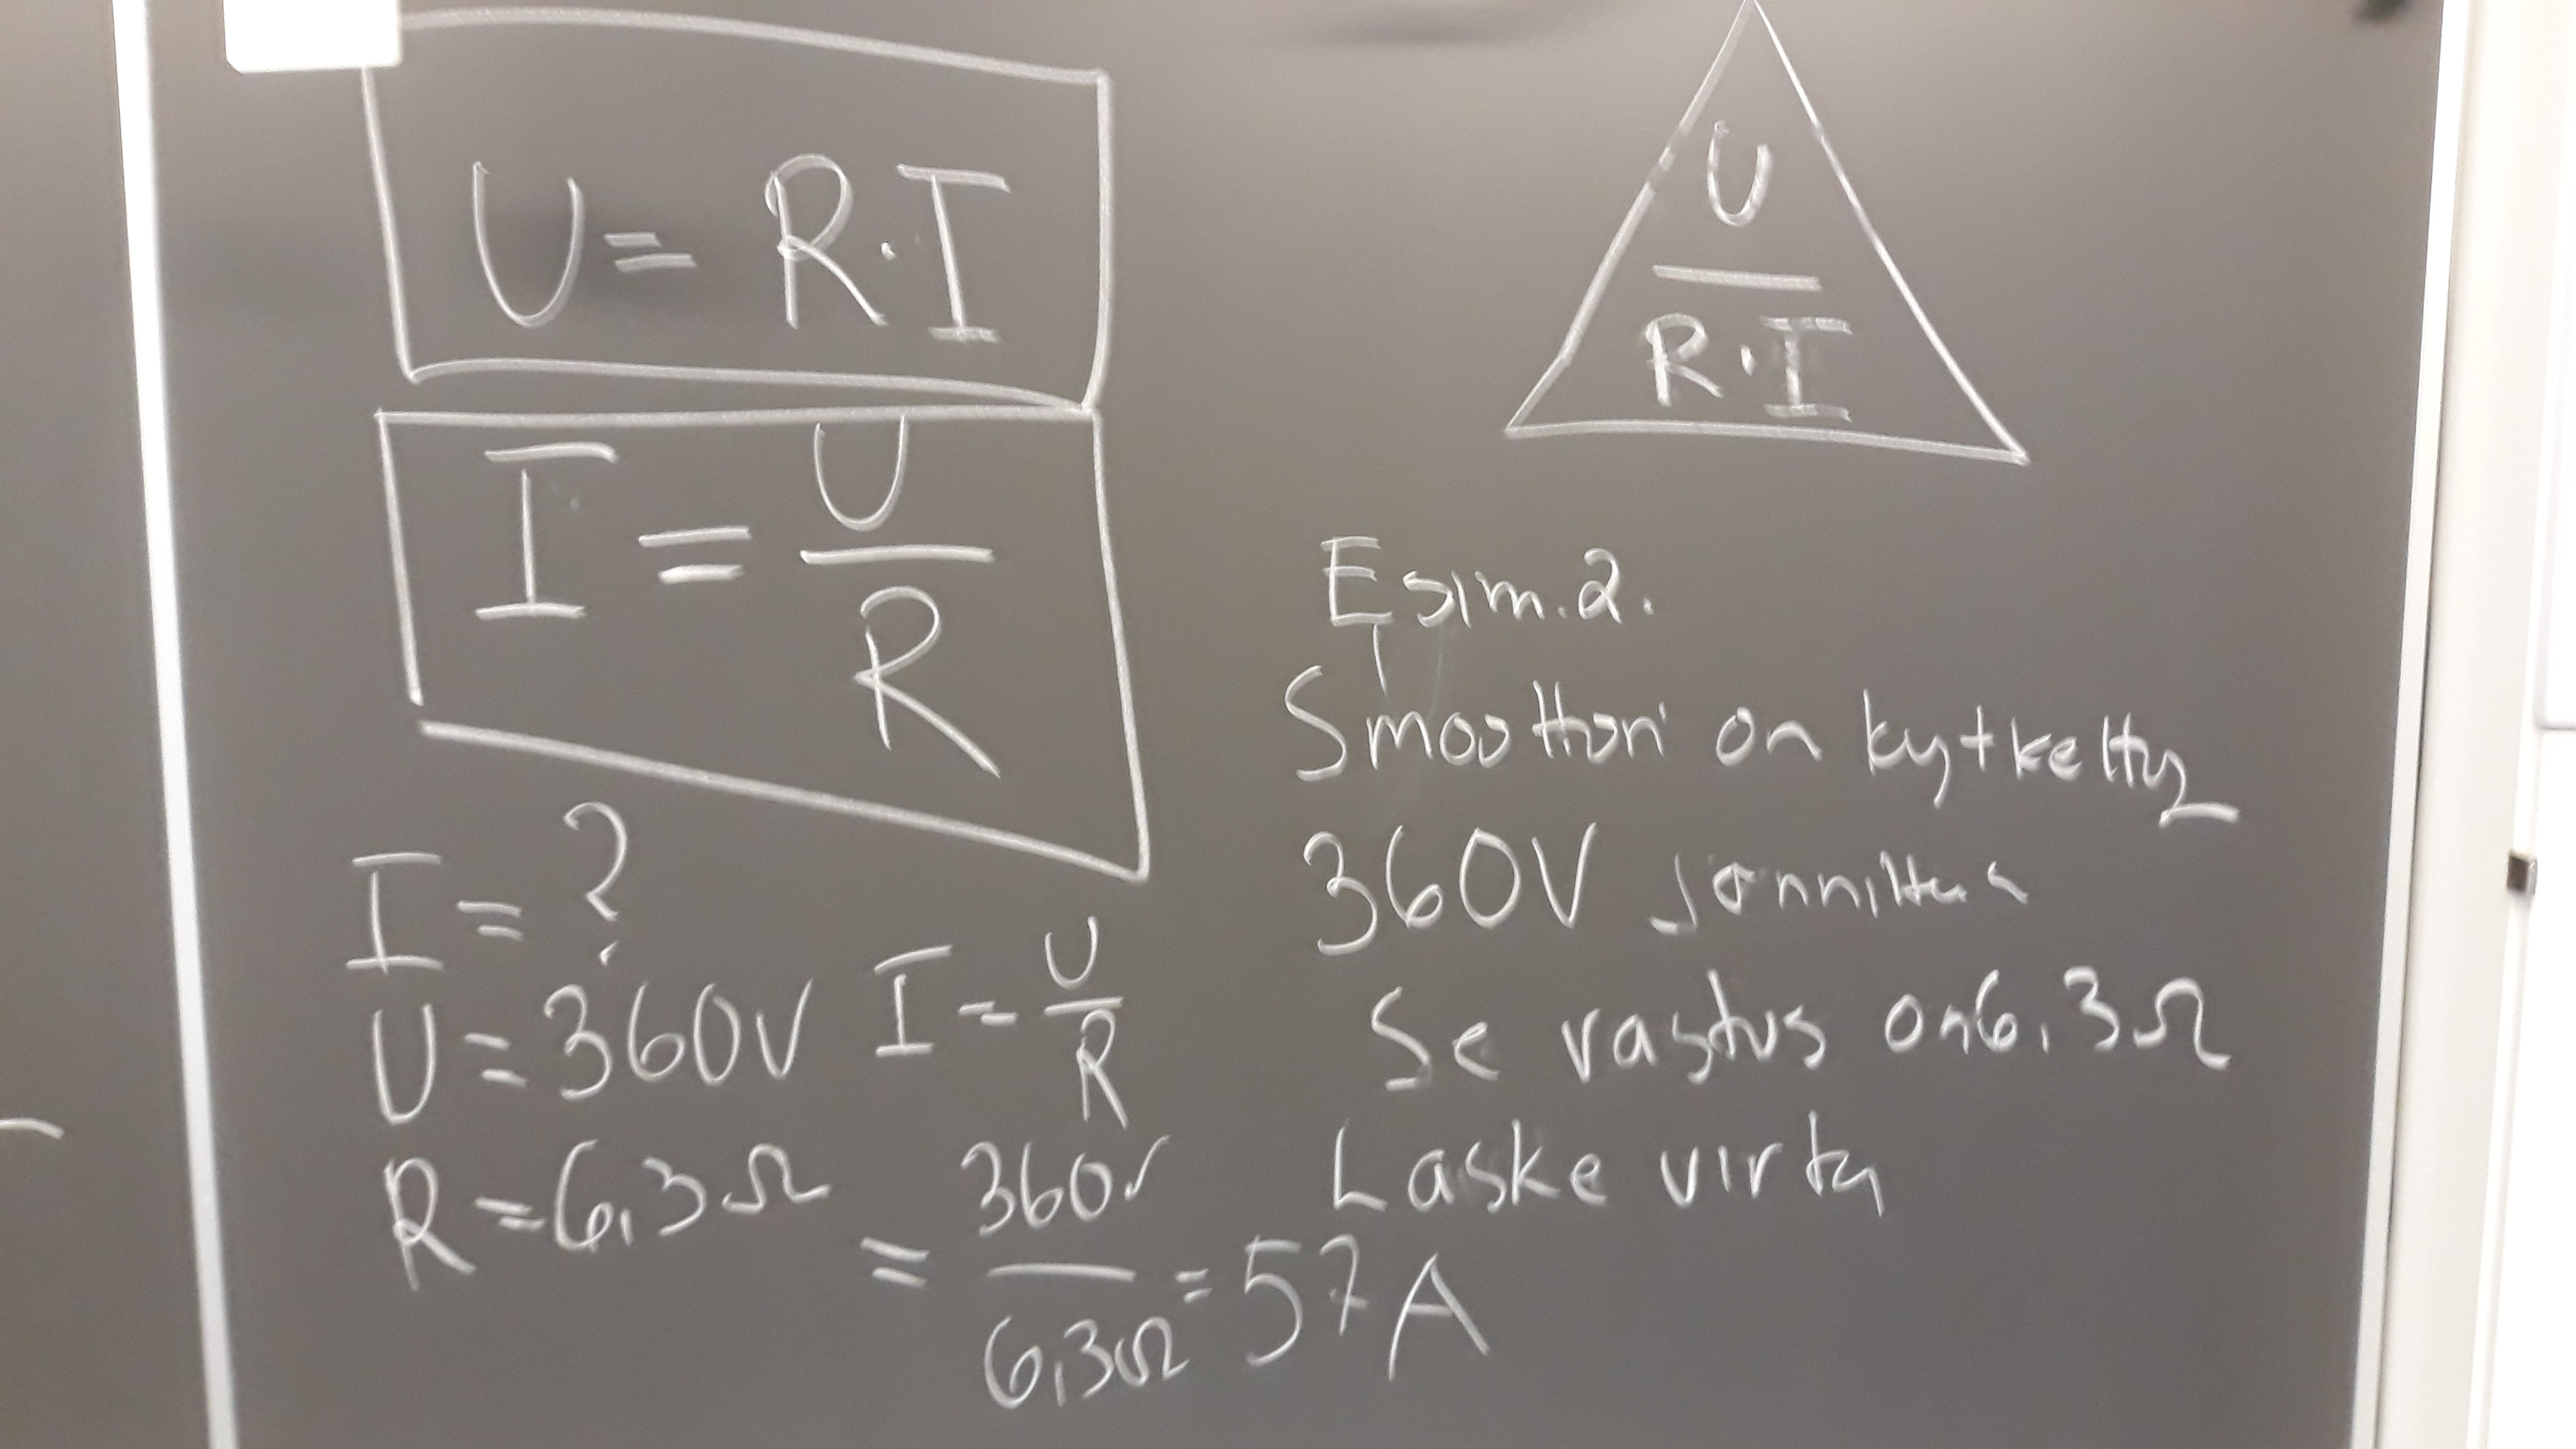 U = R·I
I = U/R
U
R·I
Esim.2.
Smoottori on kytketty
360V
Se vastus on 6,3Ω
Laske virta
I = ?
U = 360V I = U/R
R = 6,3Ω
= 360V/6,3Ω = 57A